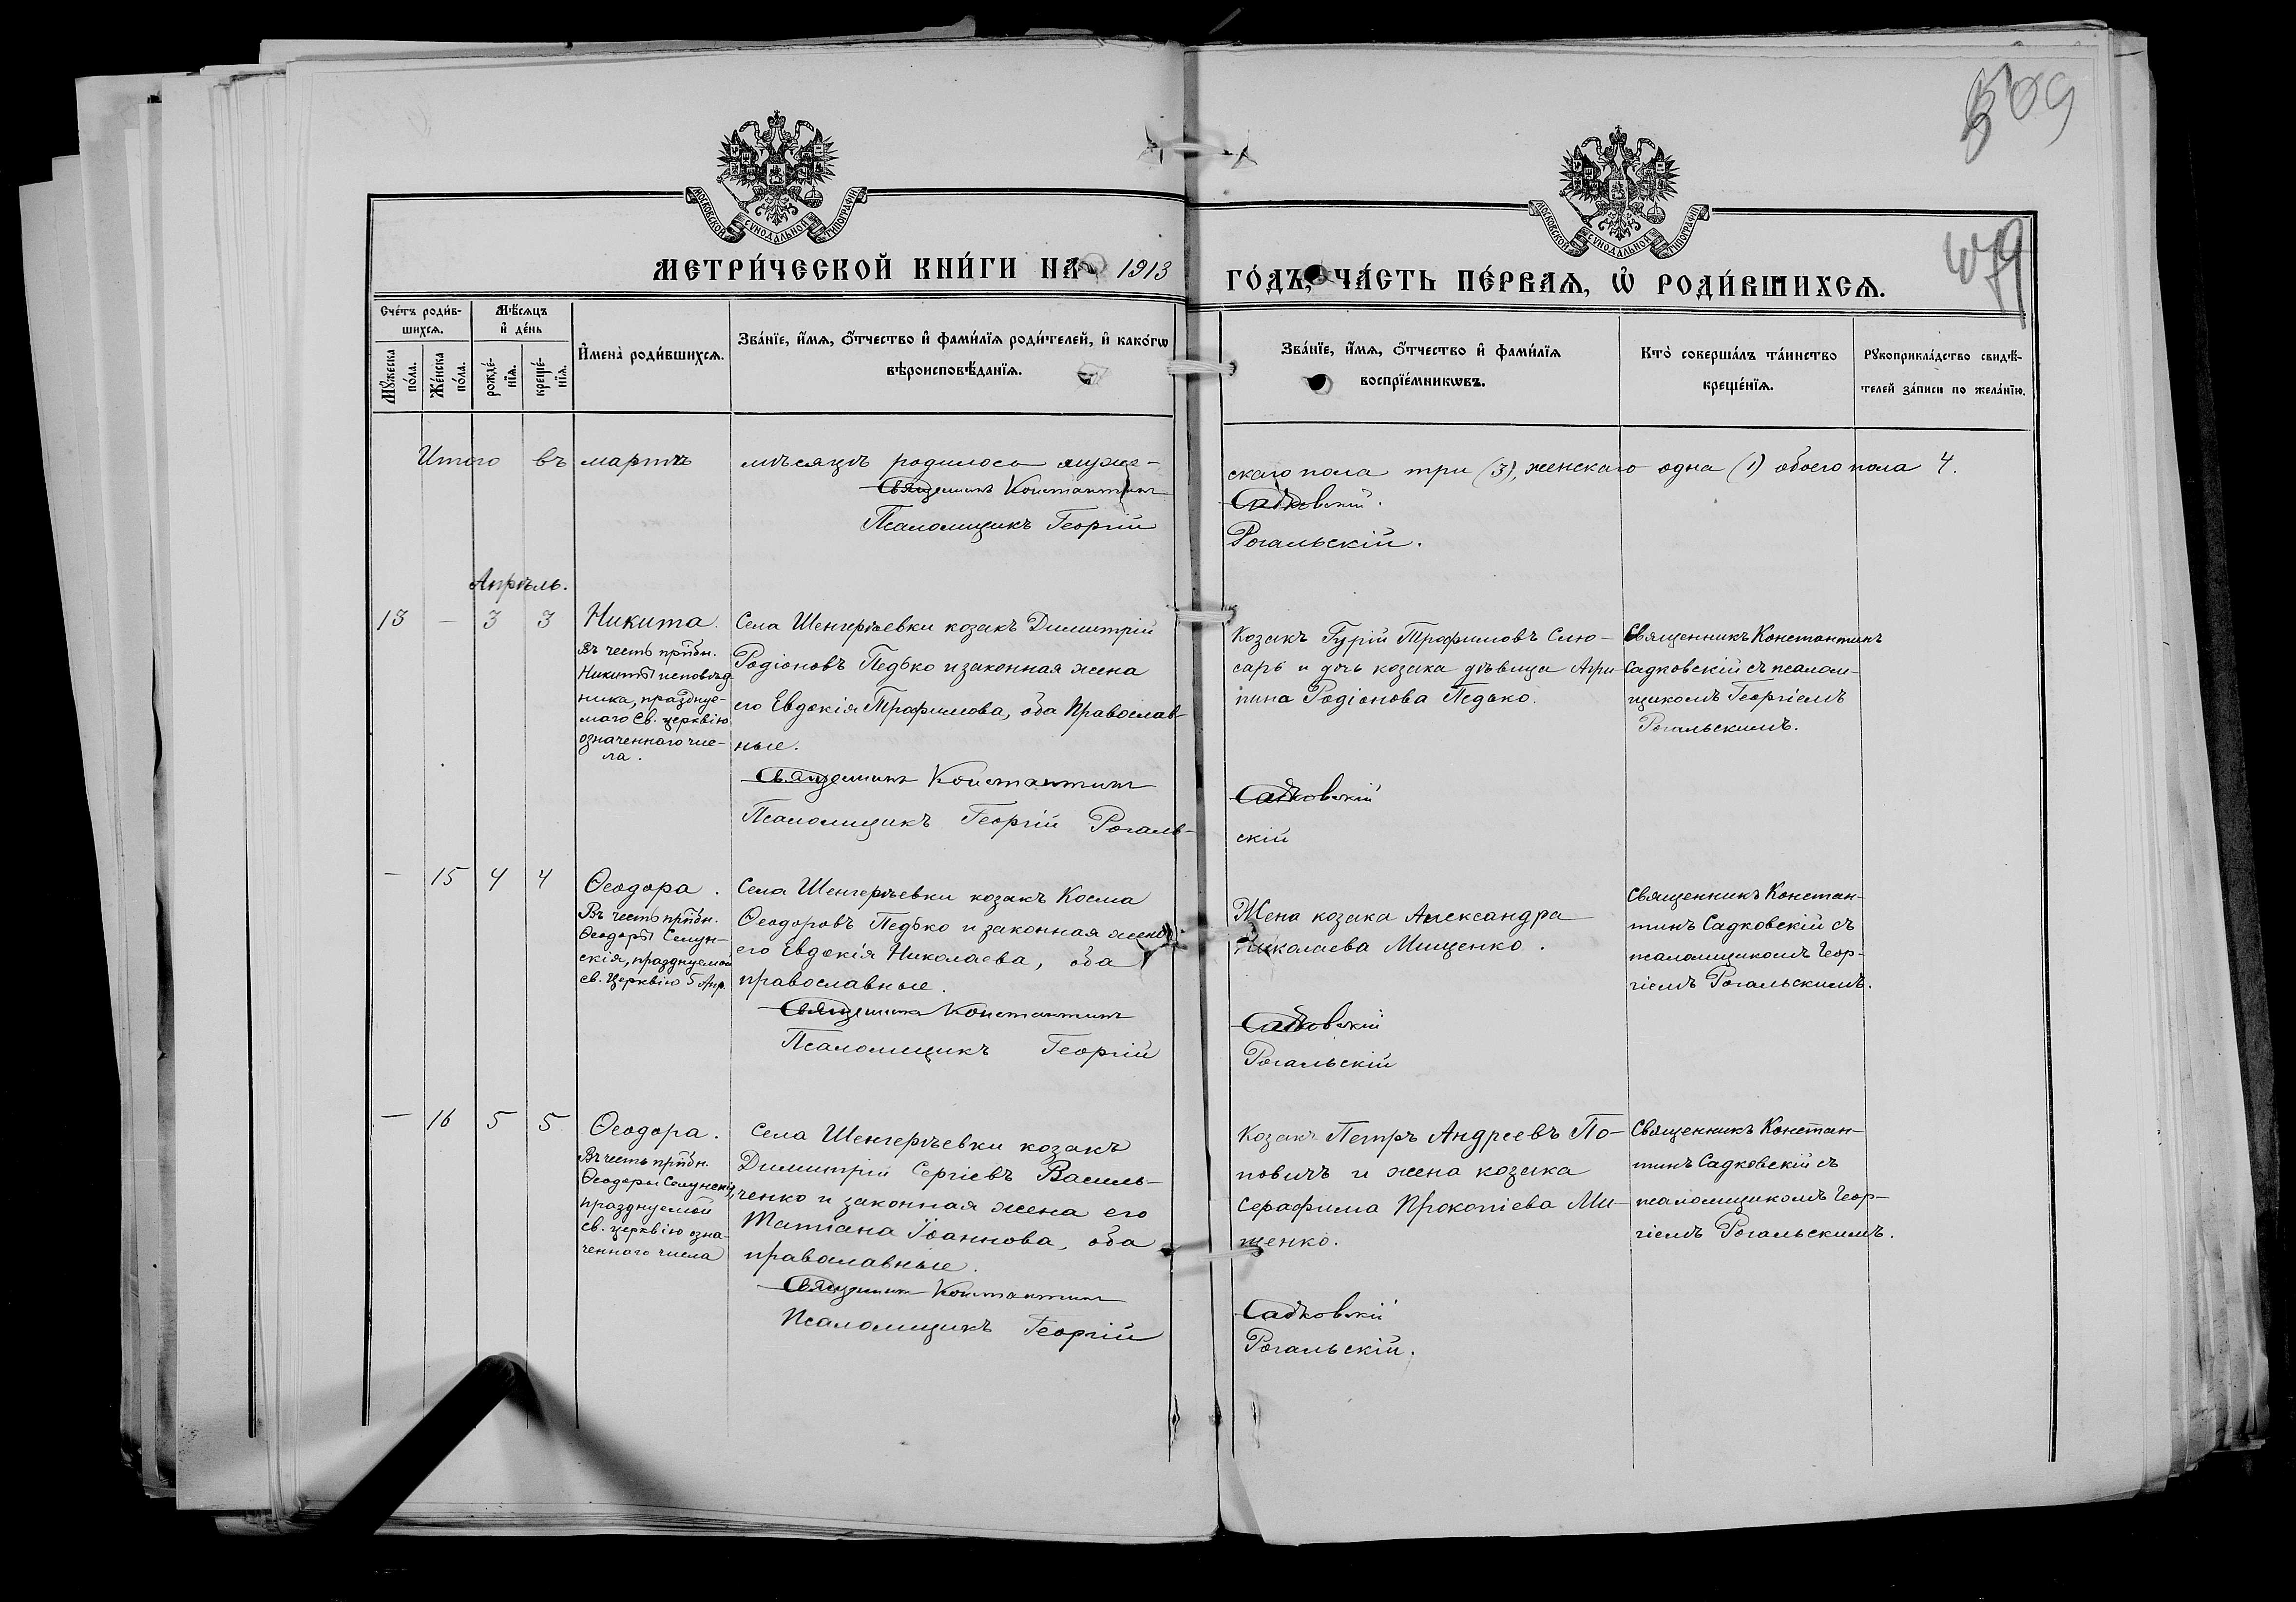 509
479
МОСКОВСКОЙ СУНОДАЛЬНОЙ ТИПОГРАФІИ
МОСКОВСКОЙ СУНОДАЛЬНОЙ ТИПОГРАФІИ
МЕТРИ́ЧЕСКОЙ КНИ́ГИ НА 1913
ГО́ДЪ, ЧА́СТЬ ПЕ́РВАѦ, Ѡ҆ РОДИ́ВШИХСѦ.
Сче́тъ роди́в-
шихсѧ.
Мꙋ́жеска
по́ла.
Же́нска
по́ла.
Мѣ́сѧцъ
и҆ де́нь
рожде́-
нїѧ.
креще́-
нїѧ.
И҆мена̀ роди́вшихсѧ.
Зва́нїе, и҆́мѧ, ѻ҆́тчество и҆ фами́лїѧ роди́телей, и҆ како́гѡ
вѣроисповѣ́данїѧ.
Зва́нїе, и҆́мѧ, ѻ҆́тчество и҆ фами́лїѧ
воспрїе́мникѡвъ.
Кто̀ соверша́лъ та́инство
креще́нїѧ.
Рꙋкоприкла́дство свидѣ́-
телей за́писи по жела́нїю.
Итого въ мартѣ мѣсяцѣ родилось муже-
скаго пола три (3), женскаго одна (1) обоего пола 4.
Священникъ Константинъ
Садковскій.
Псаломщикъ Георгій
Рогальскій.
Апрѣль.
13 — 3 3
Никита.
Въ честь прпдн.
Никиты исповѣд
ника, празднуе-
маго Св. церквію
означеннаго чис-
ла.
Села Шенгерѣевки козакъ Димитрій
Родіоновъ Педько и законная жена
его Евдокія Трофимова, оба Православ-
ные.
Священникъ Константинъ
Псаломщикъ Георгій Рогаль-
Козакъ Гурій Трофимовъ Слю-
сарь и дочь козака дѣвица Агри-
пина Родіонова Педько.
Садковскій
скій
Священникъ Константинъ
Садковскій съ псалом-
щикомъ Георгіемъ
Рогальскимъ.
— 15 4 4
Ѳеодора.
Въ честь прпдн.
Ѳеодоры Селун-
скія, празднуемой
св. Церквію 5 Апр.
Села Шенгерѣевки козакъ Косма
Ѳеодоровъ Педько и законная жена
его Евдокія Николаева, оба
православные.
Священникъ Константинъ
Псаломщикъ Георгій
Жена козака Александра
Николаева Мищенко.
Садковскій
Рогальскій
Священникъ Констан-
тинъ Садковскій съ
псаломщикомъ Геор-
гіемъ Рогальскимъ.
— 16 5 5
Ѳеодора.
Въ честь прпдн.
Ѳеодоры Селунскія,
празднуемой
св. церквію озна-
ченнаго числа
Села Шенгерѣевки козакъ
Димитрій Сергіевъ Василь-
ченко и законная жена его
Татіана Іоаннова, оба
православные.
Священникъ Константинъ
Псаломщикъ Георгій
Козакъ Петръ Андреевъ По-
повичъ и жена козака
Серафима Прокопіева Ми-
щенко.
Садковскій
Рогальскій.
Священникъ Констан-
тинъ Садковскій съ
псаломщикомъ Геор-
гіемъ Рогальскимъ.